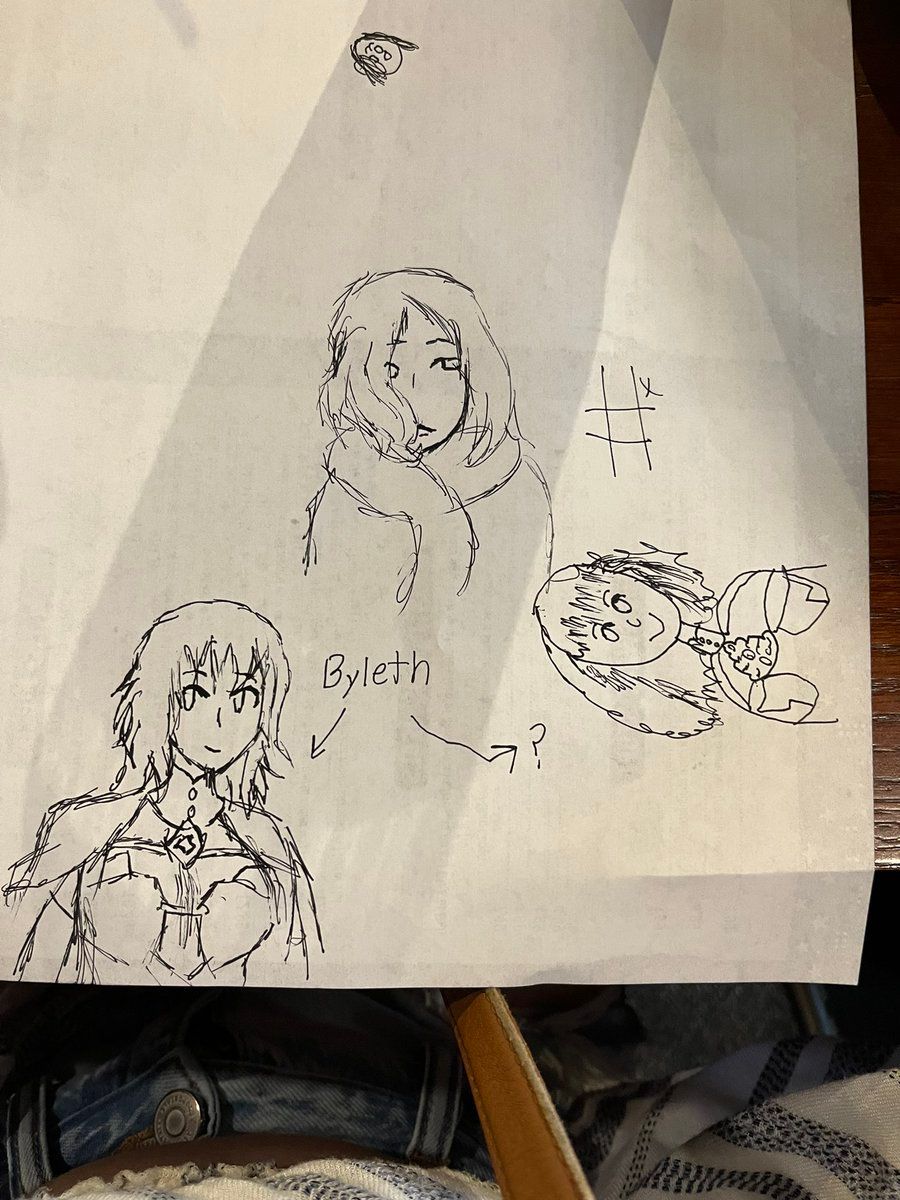 Byleth
?
x